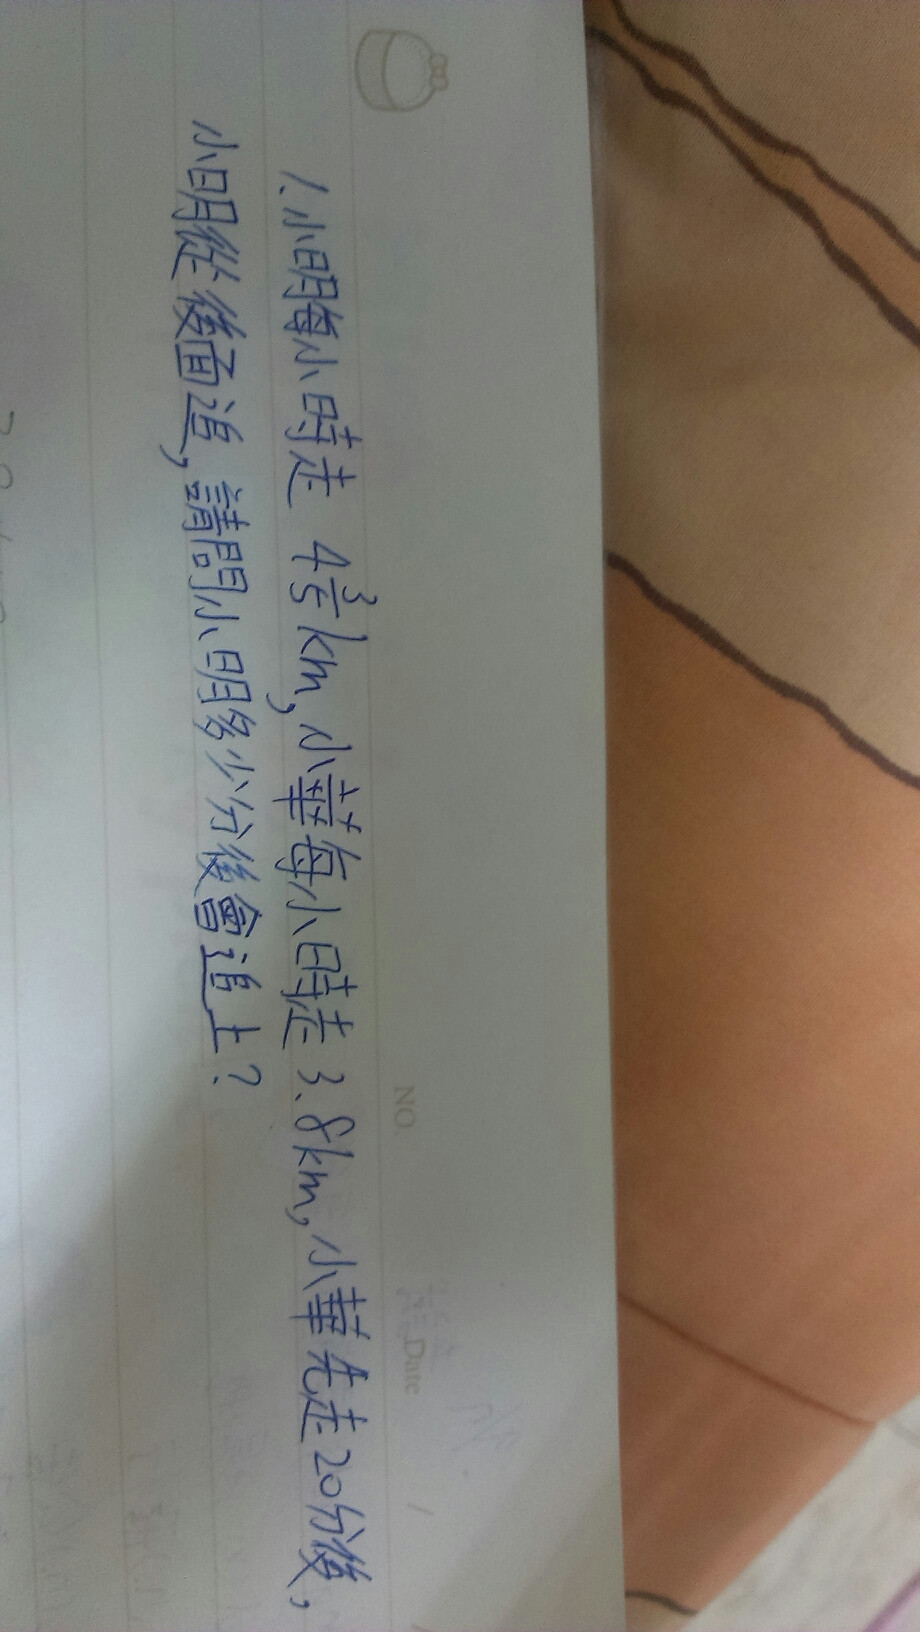 NO.
Date
1.小明每小時走 4 3/5 km,小華每小時走3.8km,小華先走20分後,
小明從後面追,請問小明多少分後會追上?